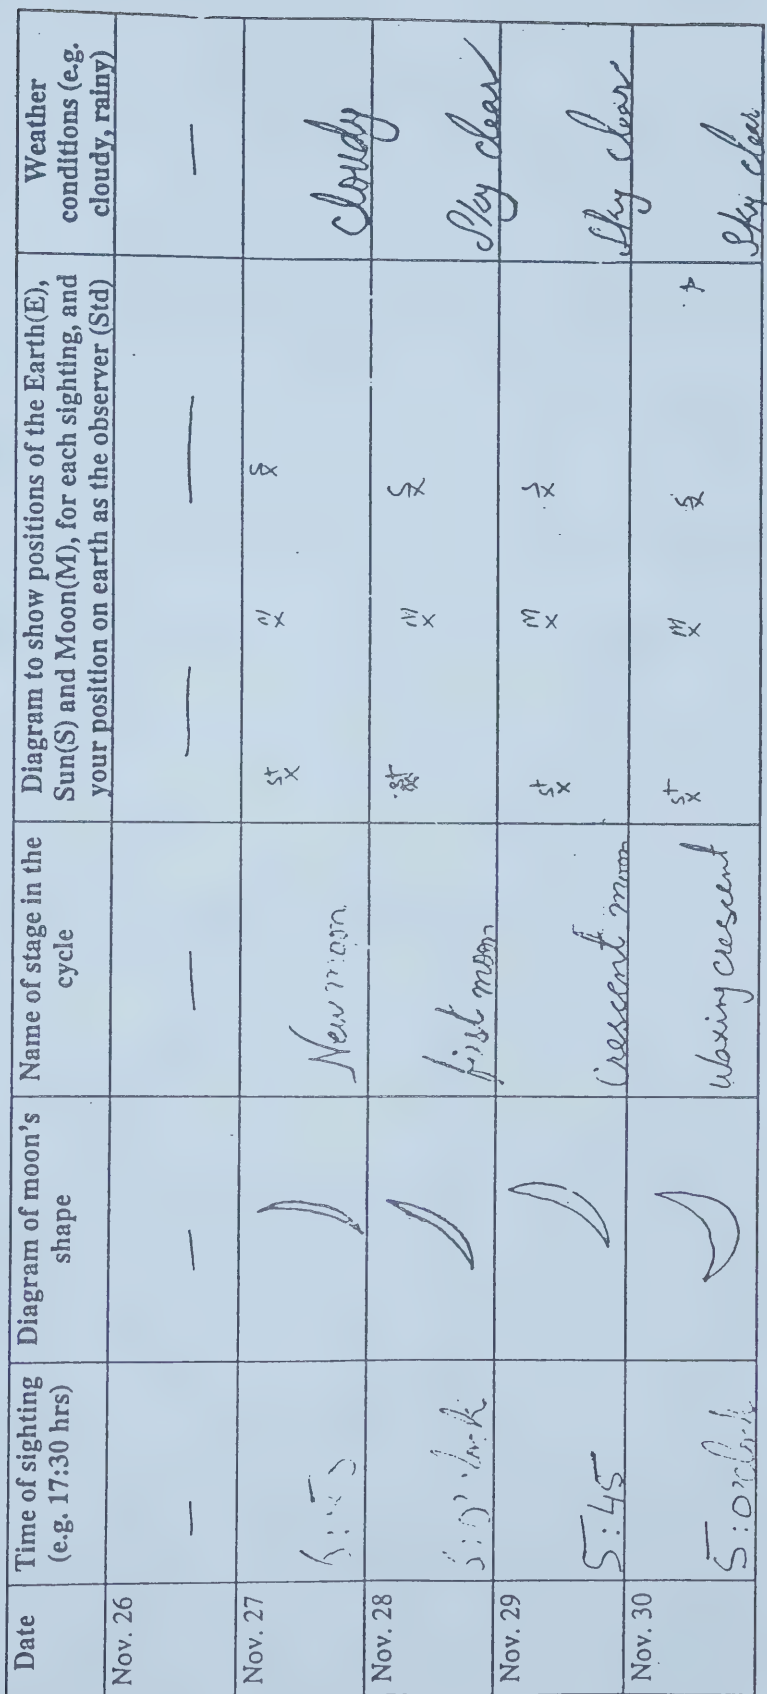 Date
Time of sighting
(e.g. 17:30 hrs)
Diagram of moon's
shape
Name of stage in the
cycle
Diagram to show positions of the Earth(E),
Sun(S) and Moon(M), for each sighting, and
your position on earth as the observer (Std)
Weather
conditions (e.g.
cloudy, rainy)
Nov. 26
— — — — — —
Nov. 27
New moon
st M S
x x x
cloudy
Nov. 28
first moon
M S
x x
Sky clear
Nov. 29
5:45
Crescent moon
st M S
x x x
Sky clear
Nov. 30
5:oclock
Waxing crescent
st M S
x x x
Sky clear